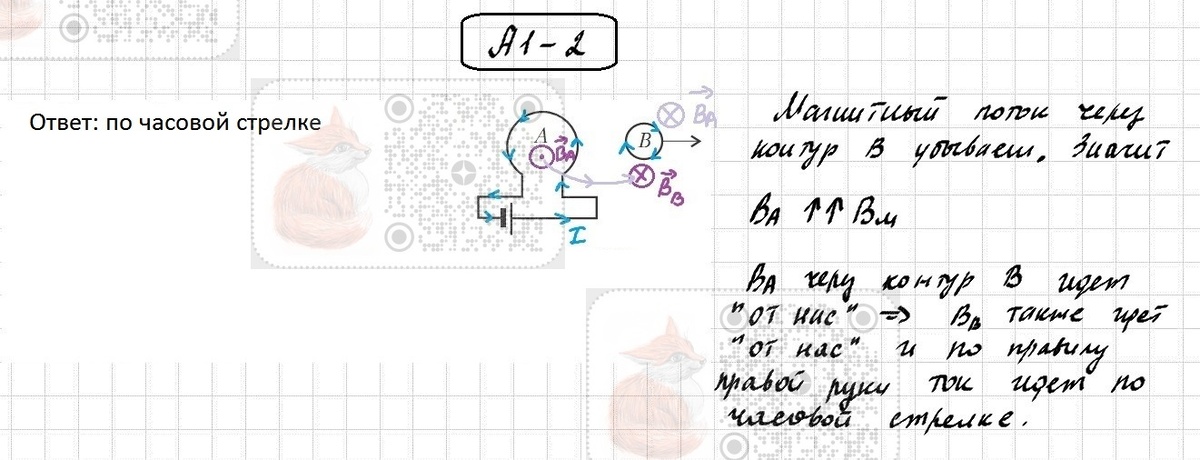 А1-2
Ответ: по часовой стрелке
A
B⃗A
B
B⃗A
B⃗B
I
Магнитный поток через
контур В убывает. Значит
BA ↑↑ Bм
BA через контур В идет
"от нас" => BB также идет
"от нас" и по правилу
правой руки ток идет по
часовой стрелке.